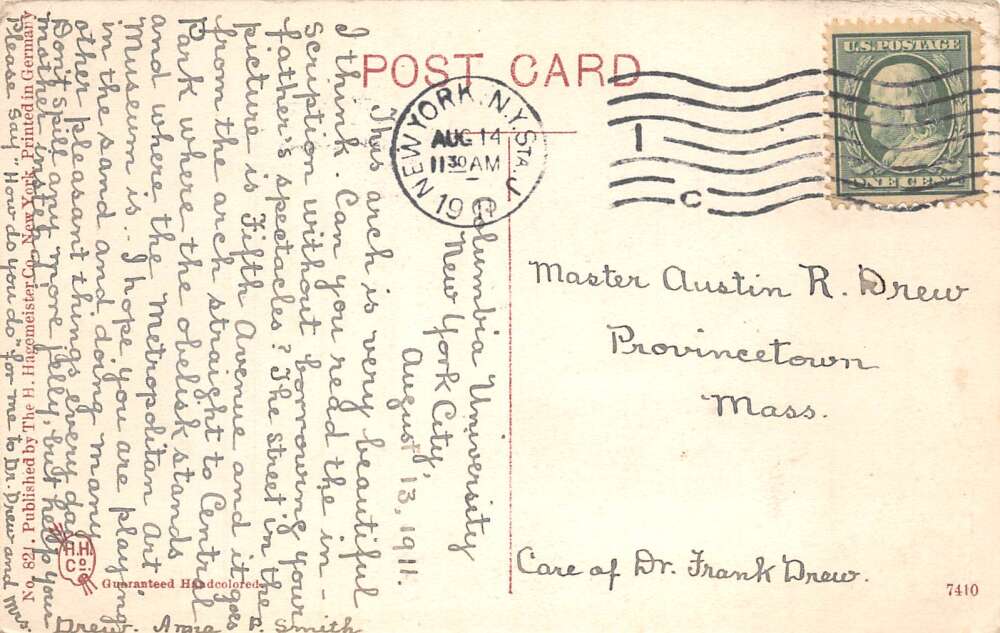 POST CARD
U.S. POSTAGE
ONE CENT
NEW YORK, N.Y. STA. J
AUG 14
11 30 AM
1911
1
C
Columbia University
New York City,
August 13, 1911.
This arch is very beautiful
I think. Can you read the in-
scription without borrowing your
father's spectacles? The street in the
picture is Fifth Avenue and it goes
from the arch straight to Central
Park where the obelisk stands
and where the Metropolitan Art
Museum is. I hope you are playing
in the sand and doing many
other pleasant things every day.
Don't spill any more jelly, but help your
mother instead.
Please say "How do you do" for me to Dr. Drew and Mrs.
Drew. Anna P. Smith
Master Austin R. Drew
Provincetown
Mass.
Care of Dr. Frank Drew.
No. 821. Published by The H. Hagemeister Co. New York. Printed in Germany
H.H.
Co.
Guaranteed Handcolored
7410